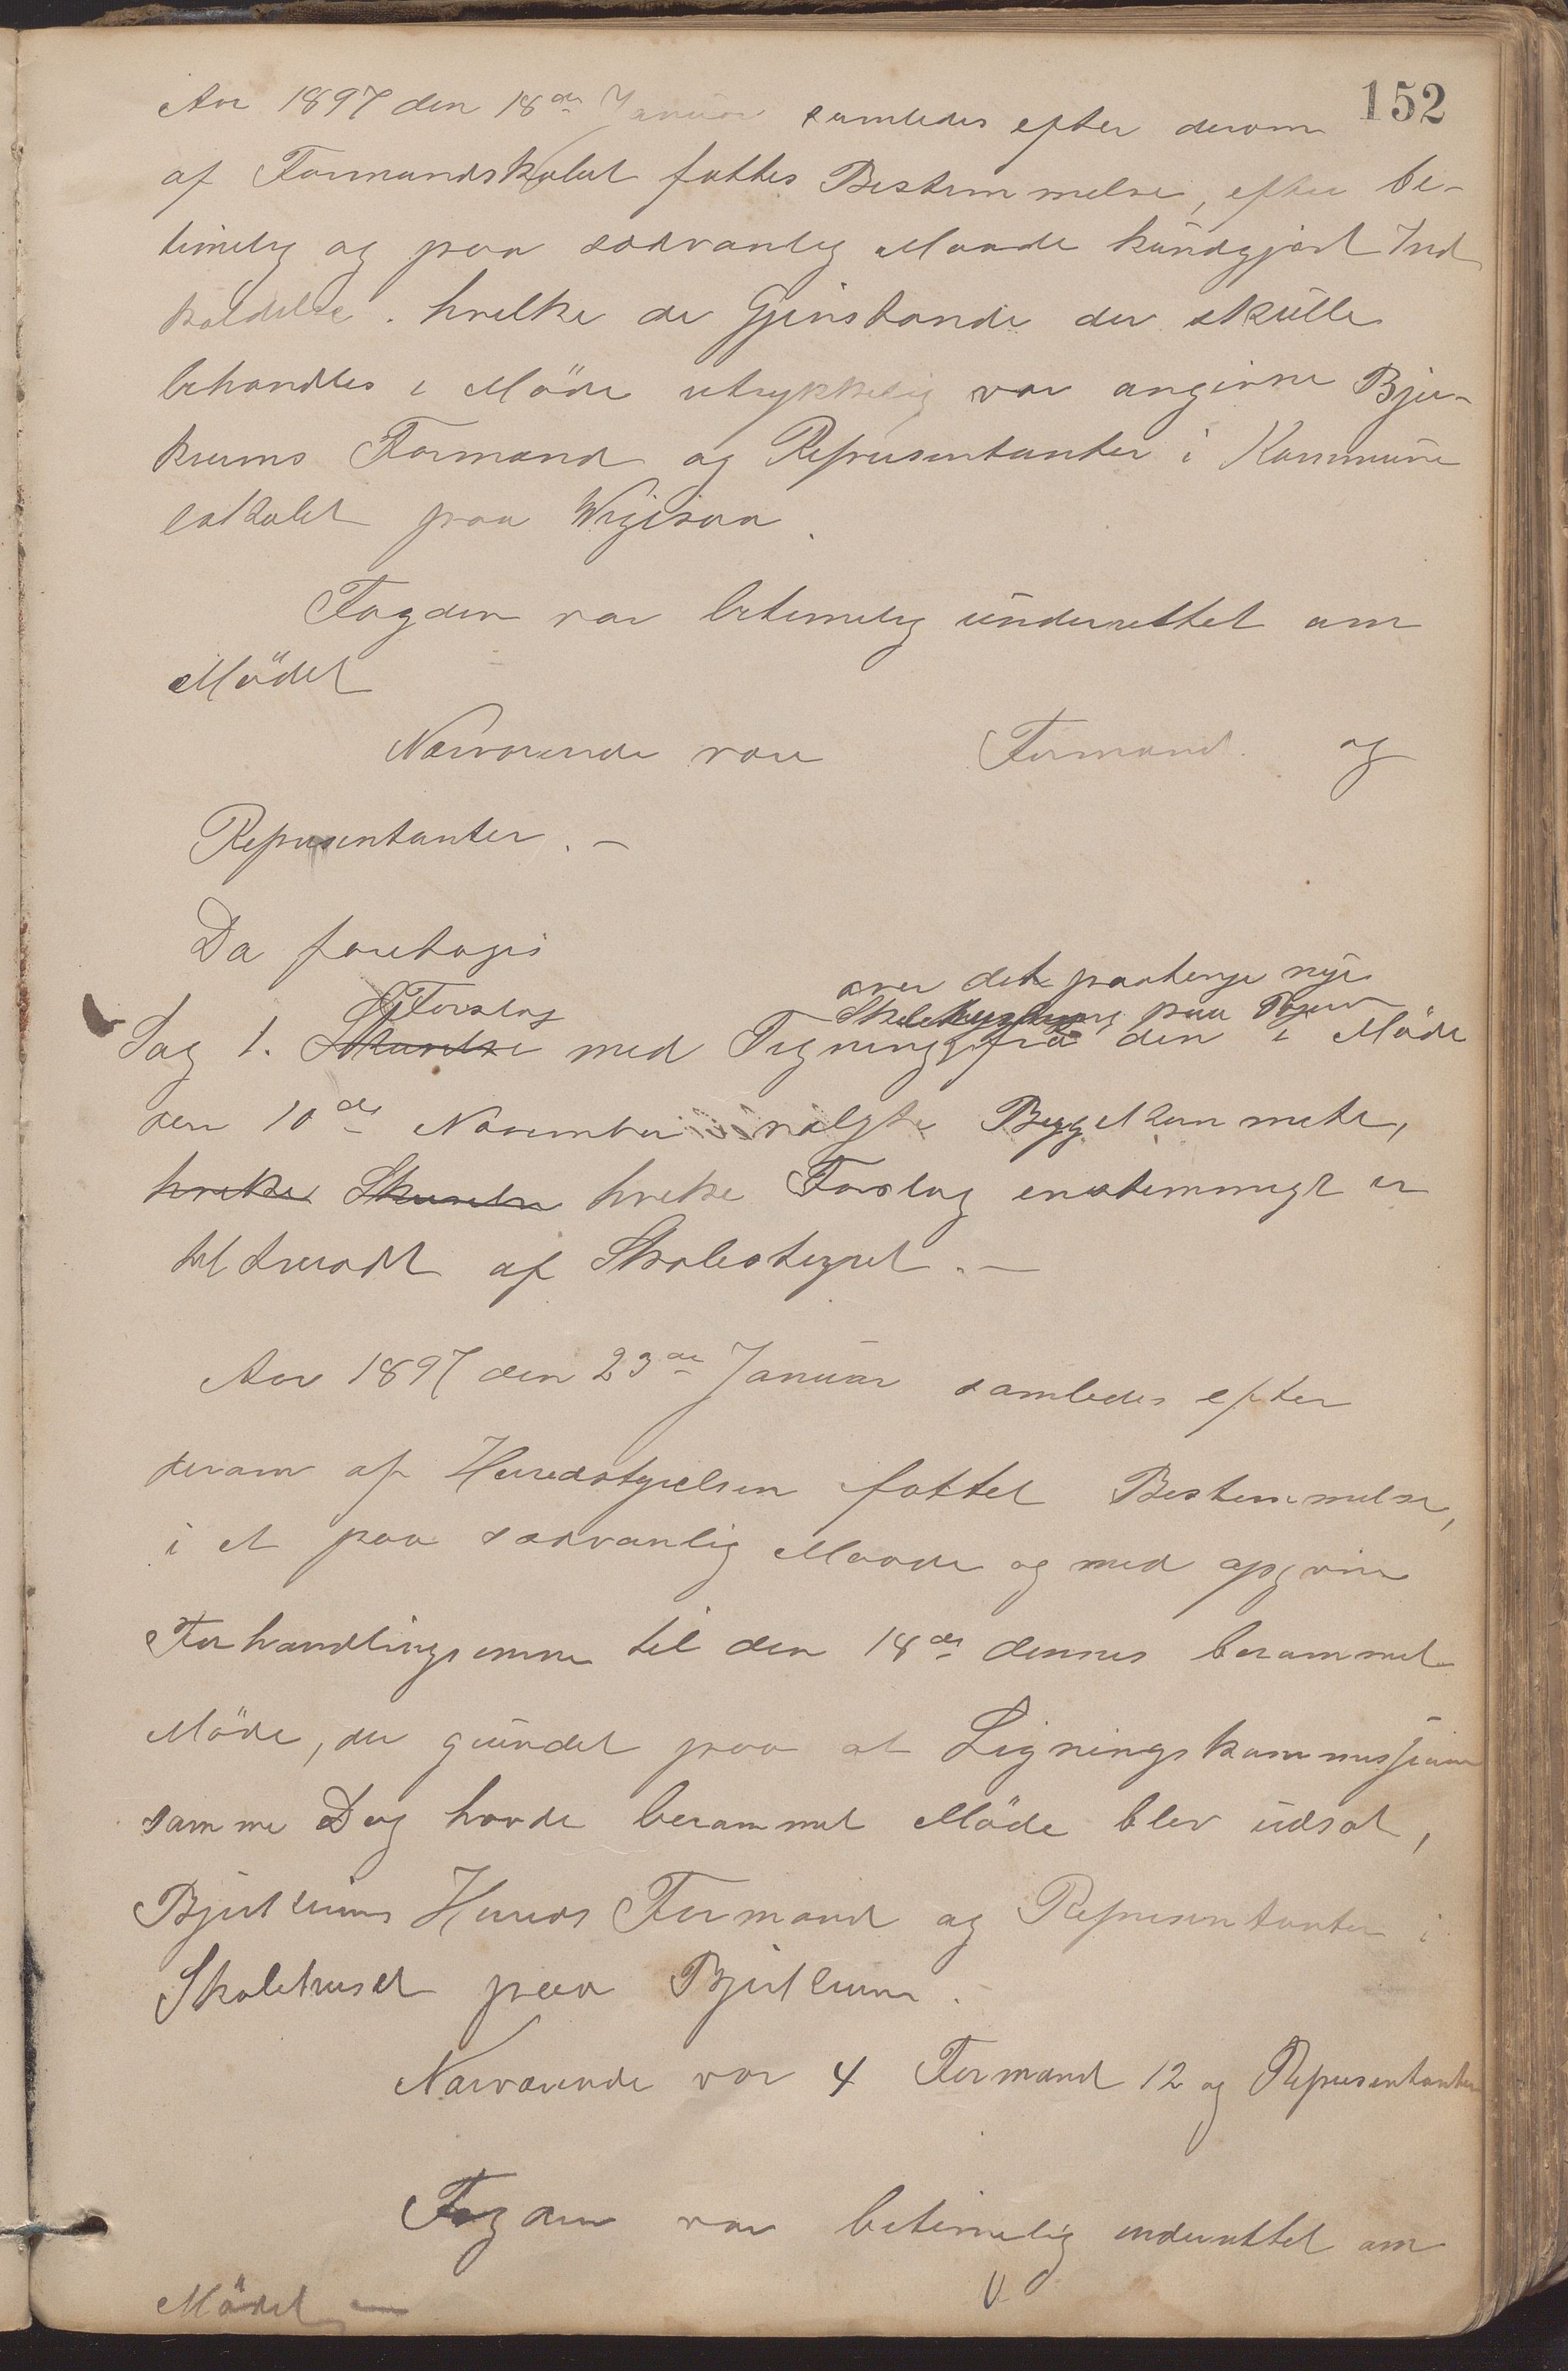 152
Aar 1897 den 18de Januar samledes efter derom
af Formandskabet fattes Bestemmelse, efter be-
timelig og paa sædvanlig Maade kundgjort Ind
kaldelse. hvelke de Gjenstande der skulle
behandles i Möde utrykkelig var angivne Bje-
kreims Formænd og Representanter i Kommune
lokalet paa Vigesaa.
Fogden var betimelig underrettet om
Mödet
Nærværende vare Formænd og
Representanter. –
Da foretoges
Forslag over det paatenge nye
Skolebygning paa
Sag 1. Skurelse med Tegning fra den i Möde
den 10de November valgte Byggekommete,
hvelke Skurelse hvelke Forslag enstemmigt er
tiltraadt af Skolestyret. –
Aar 1897 den 23de Januar samledes efter
derom af Herredstyrelsen fattet Bestemmelse,
i et paa sædvanlig Maade og med opgivne
Forhandlingsemne til den 18de dennes berammet
Möde, der grundet paa at Ligningskommissjonen
samme Dag havde berammet Möde blev udsat,
Bjerkreims Hereds Formænd og Representanter i
Skolehuset paa Bjerkreim.
Nærværende var 4 Formænd 12 og Representanter
Fogden var betimelig underrettet om
Mödet –